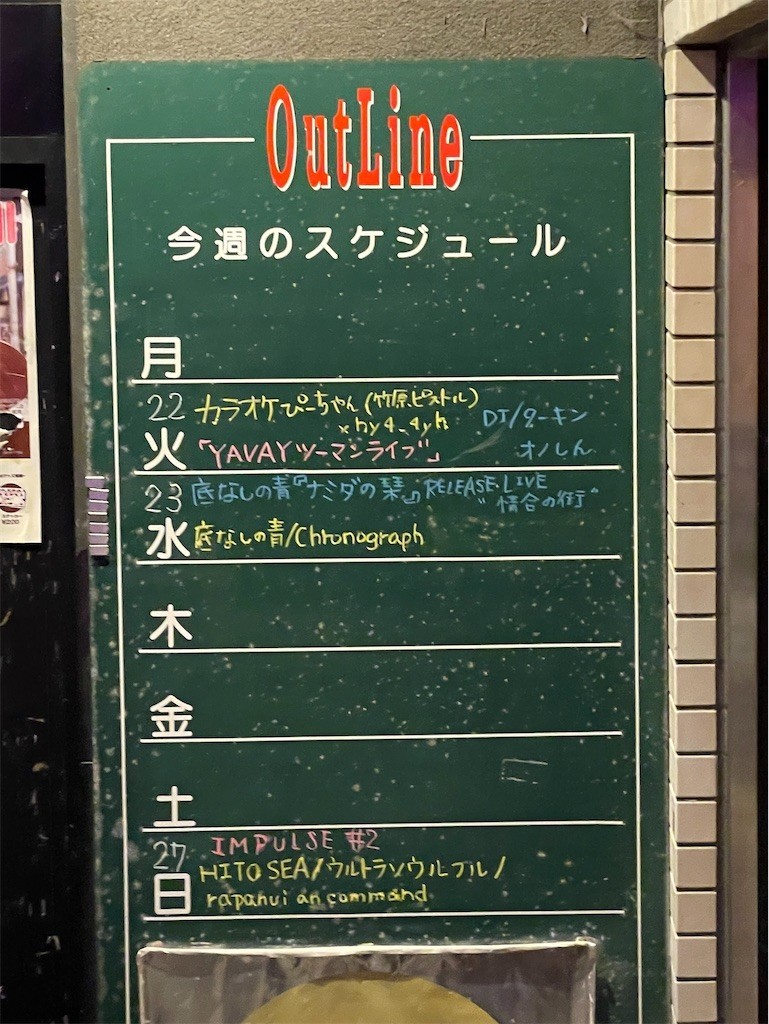 OutLine
今週のスケジュール
月
22 カラオケぴーちゃん(竹原ピストル)
×hy4_4yh
DJ/ターキン
オノしん
火 「YAVAYツーマンライブ」
23 底なしの青『ナミダの栞』RELEASE LIVE
"情合の街"
水 底なしの青/Chronograph
木
金
土
27 IMPULSE #2
HITO SEA/ウルトラソウルフル/
日 rapanui an command